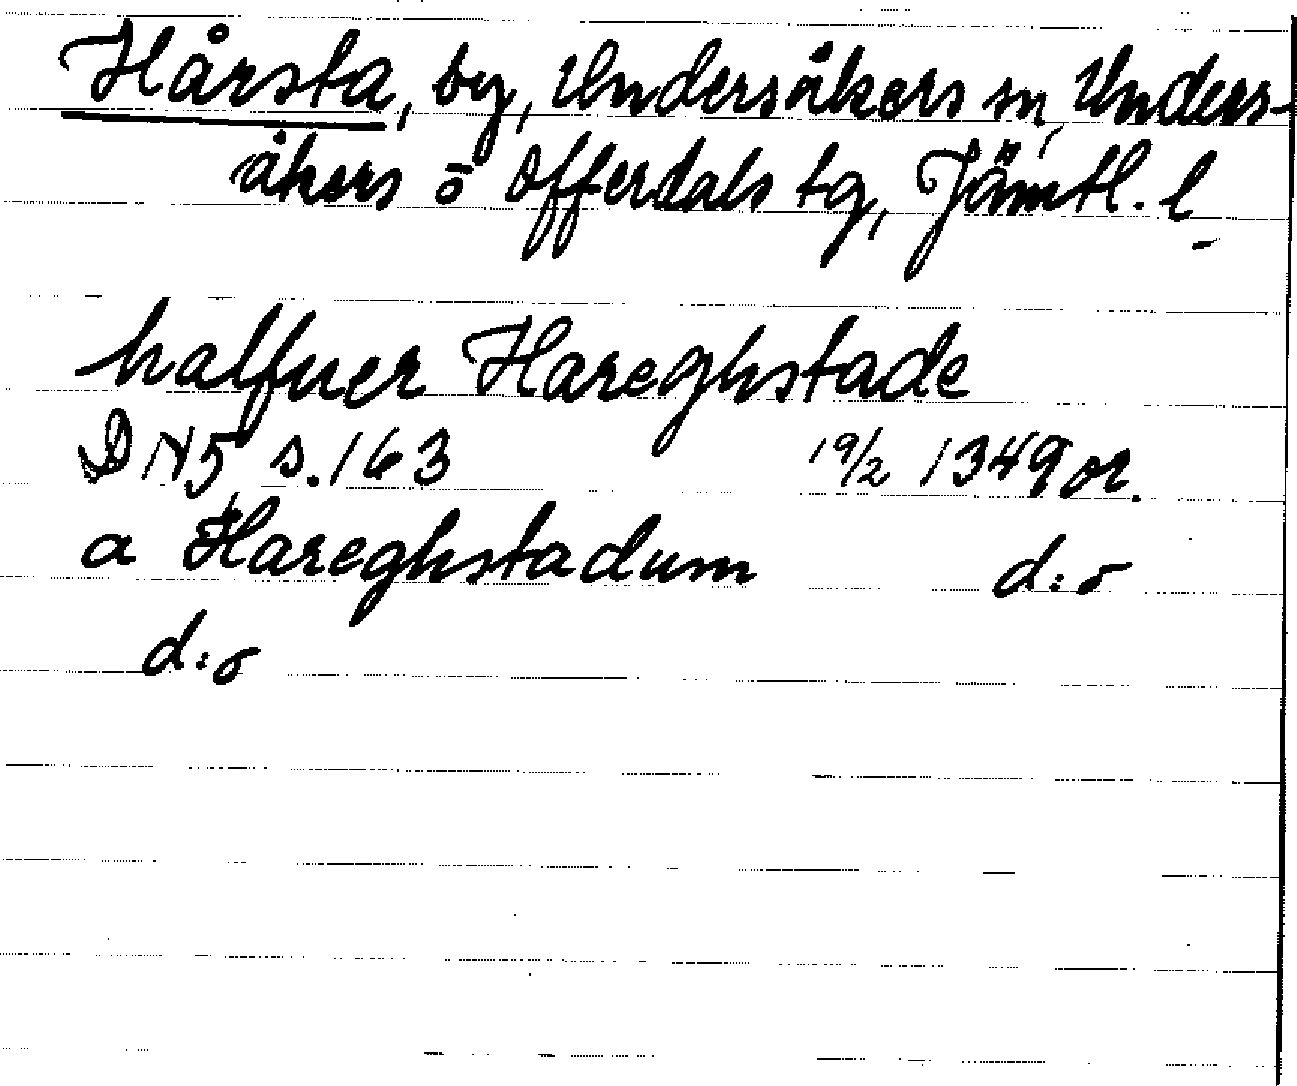 Hårsta, by, Undersåkers sn, Unders-
åkers o Offerdals tg, Jämtl. l
halfuer Hareghstade
DN5 s. 163 19/2 1349 or.
a Hareghstadum d:o
d:o